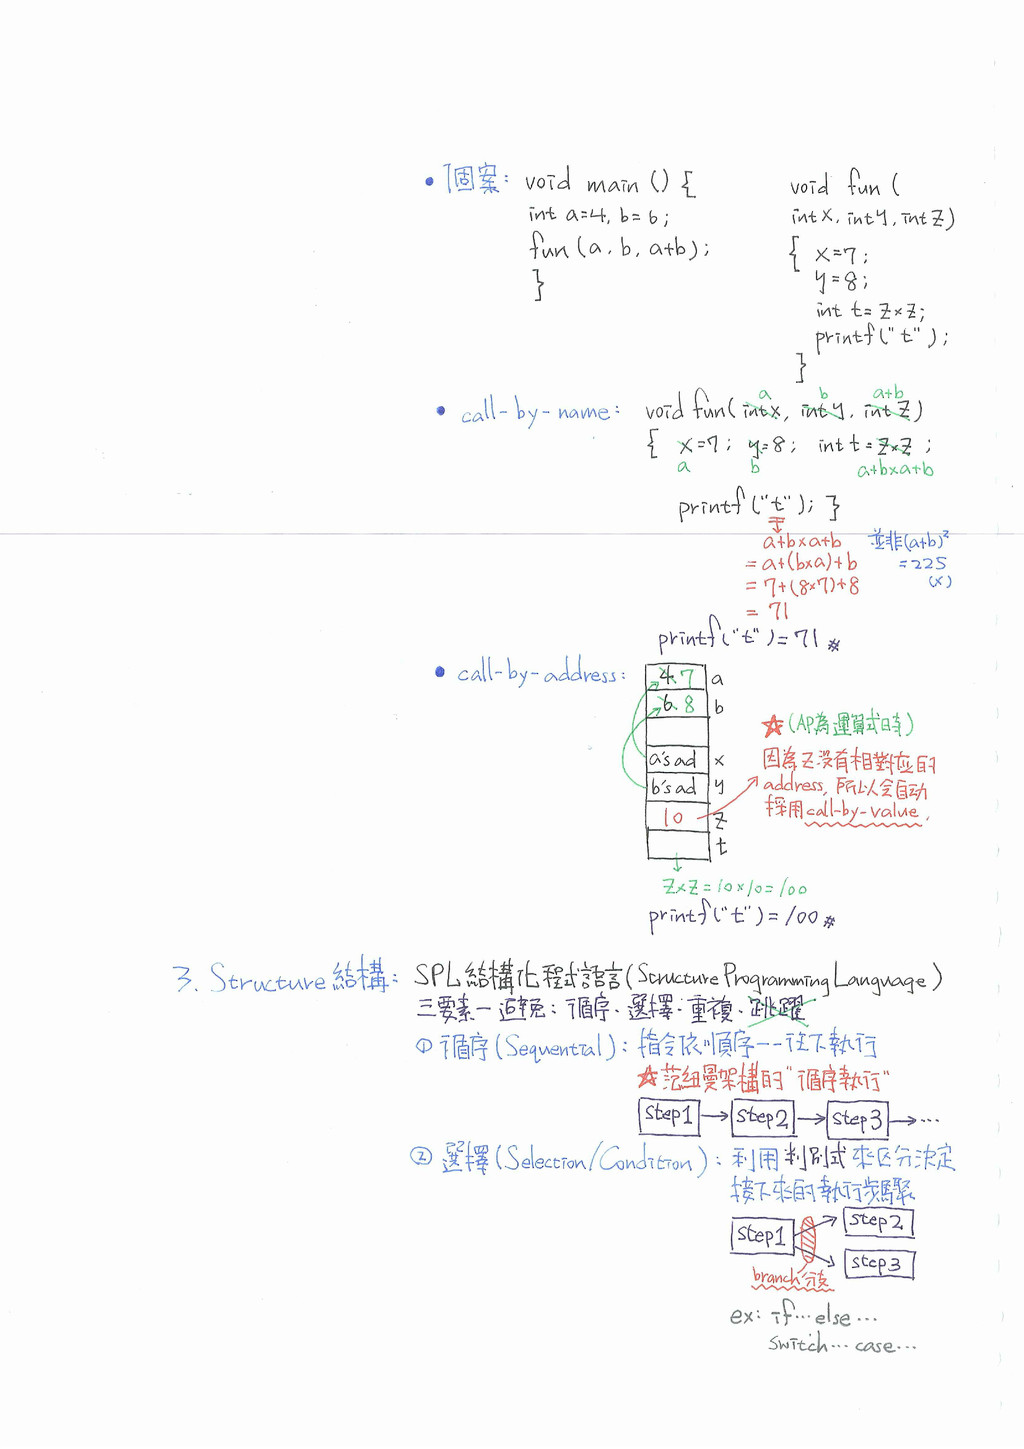 • 個案: void main () {
int a=4, b=6;
fun (a, b, a+b);
}
void fun (
int x, int y, int z)
{ x=7;
y=8;
int t= z×z;
printf("t");
}
a b a+b
• call-by-name: void fun( int x, int y, int z)
{ x=7; y=8; int t= z×z ;
a b a+b×a+b
printf("t"); }
a+b×a+b
= a+(b×a)+b
= 7+(8×7)+8
= 71
並非(a+b)²
=225
(×)
printf("t")=71 #
• call-by-address:
4 7 a
6 8 b
a's ad x
b's ad y
10 z
t
☆(AP為運算式時)
因為z沒有相對應的
address, 所以会自动
採用call-by-value.
z×z=10×10=100
printf("t")=100 #
3. Structure 結構: SPL 結構化程式語言(Structure Programming Language)
三要素一避免: 循序、選擇、重複、跳躍
① 循序(Sequential): 指令依順序一一往下執行
☆范紐曼架構的"循序執行"
step1 → step2 → step3 → ...
② 選擇(Selection/Condition): 利用判別式來区分決定
接下來的執行步驟
step1
step2
step3
branch分支
ex: if...else...
switch...case...